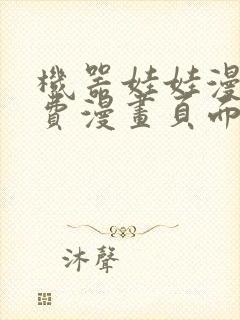 機器娃娃漫
費漫畫頁面
沐聲